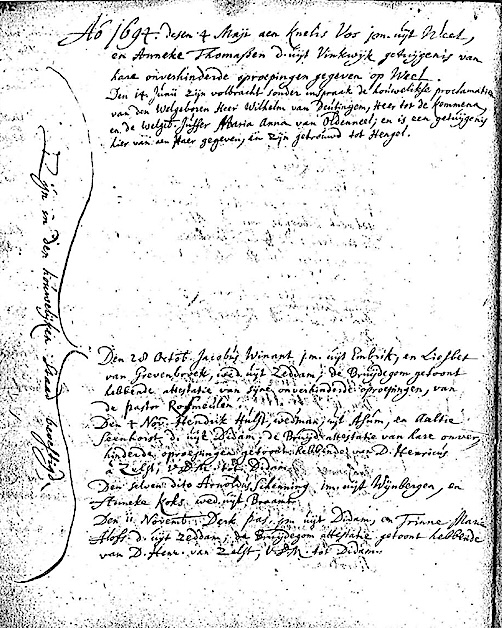 Aõ 1694. desen 4 Maji aen Knelis Vos jm. uijt Weel,
en Anneke Thomassen d. uijt Vinkwijk getuijgenis van
hare onverhinderde oproepingen gegeven op Weel.
Den 14 Junii zijn volbracht sonder inspraak de houwelijkse proclamatien
van den Welgeboren Heer Wilhelm van Deutingem, Heer tot de Kemmena,
en de welgeb. Juffer Maria Anna van Oldenneel, en is een getuijgenis
hier van aen Haer gegeven, en zijn getrouwd tot Hengel.
Zijn in den houwelijken staad bevestigd,
Den 28 Octob. Jacobus Winant jm. uijt Embrik, en Liesbet
van Goevenbroek, wed. uijt Zeddam; de Bruijdegom getoont
hebbende attestatie van sijne onverhinderde oproepingen, van
de pastor
Den 4 Nov. Hendrik Hulst, wedman, uijt en Aaltie
d. uijt Didam; de Bruijd attestatie van hare onver
hinderde oproepingen getoont hebbende van D. Henricus
a Zelst, V.D.M. tot Didam.
Den selven dito Arnoldus jm. uijt Wijnbergen, en
Anneke Koks, wed. uijt Braamt.
Den 11 Novemb. Derk Pas, jm uijt Didam, en Trinne Maria
d. uijt Zeddam; de Bruijdegom attestatie getoont hebbende
van D. Henr. van Zelst, V.D.M. tot Didam.